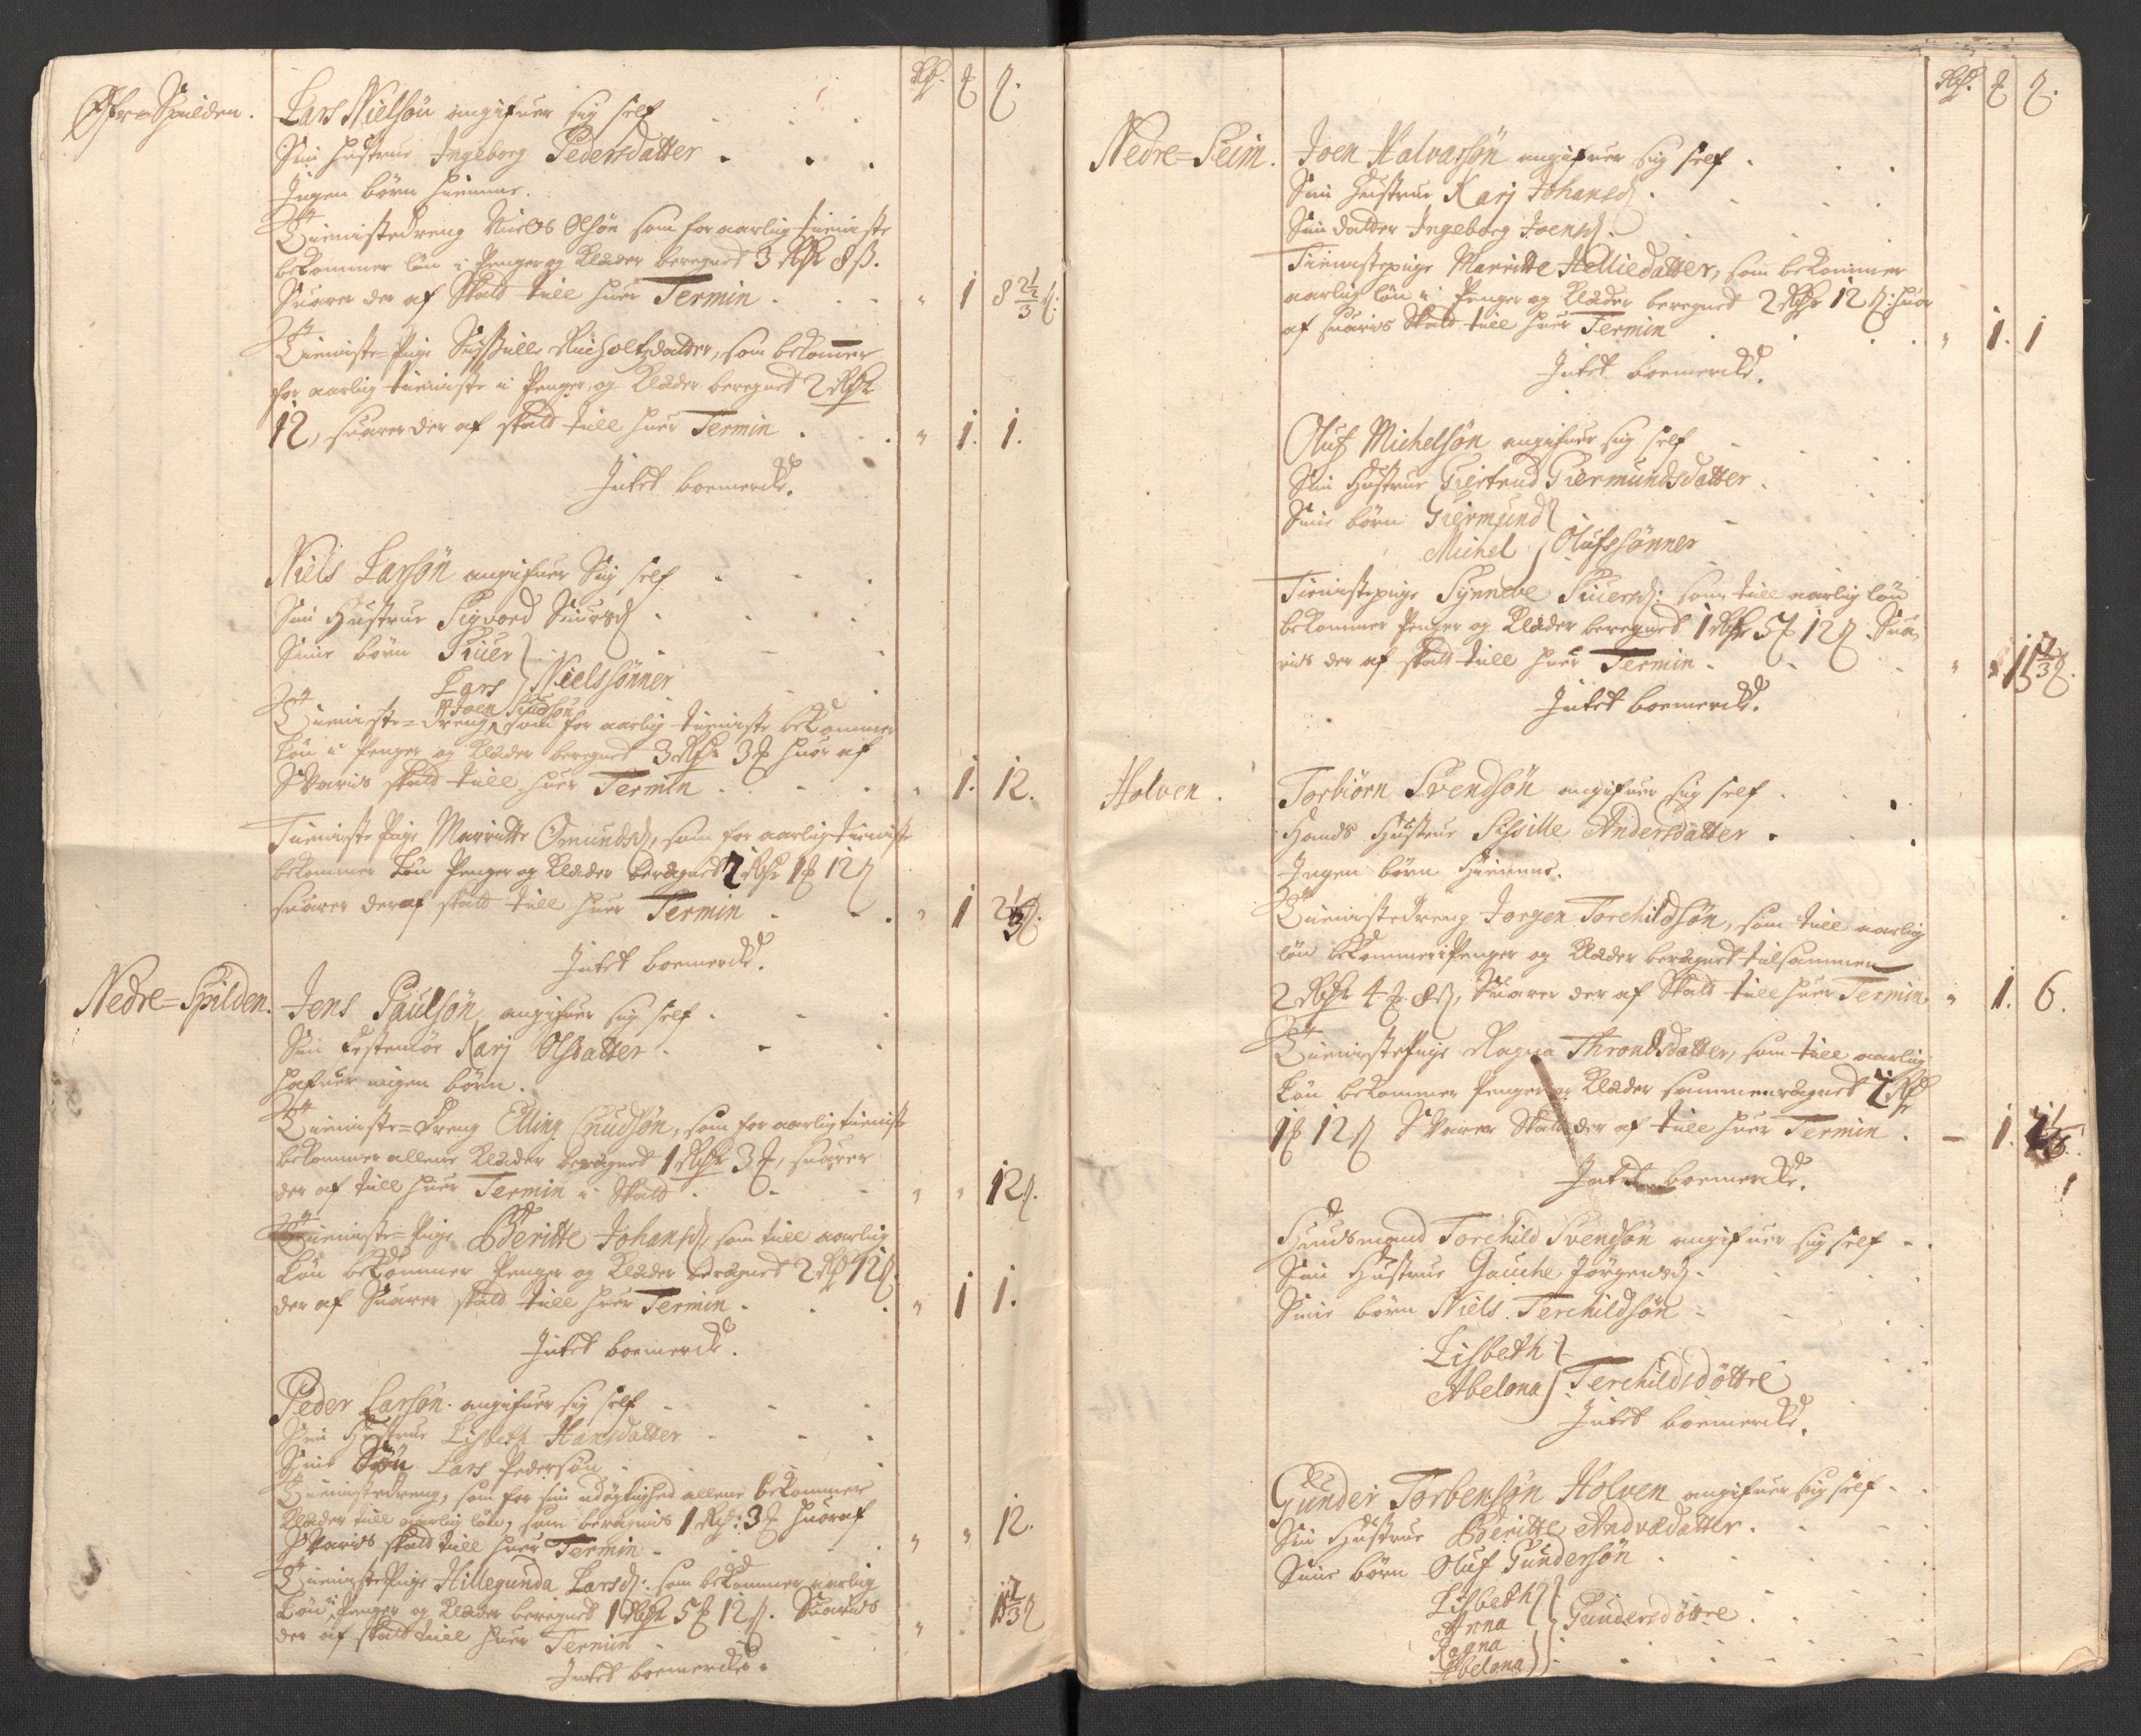 Rdr. ℔ ß.
Øfre=Spilden. Lars Nielsøn angifuer sig self
Sin hustrue Ingeborg Pedersdatter
Ingen børn hiemme.
Tienistedreng Niels Olsøn som for aarlig tieniste
bekommer løn i Penger og Klæder beregned 3 Rdr 8 ß.
Suarer der af Skatt till huer Termin " 1 8 2/3 ß.
Tieniste=Pige datter, som bekommer
for aarlig tieniste i Penger og Klæder beregned 2 Rdr
12, suarer der af skatt till huer Termin " 1. 1.
Intet boemercke.
Niels Larsøn angifuer Sig self
Sin Hustrue Sigvord Siursd
Sine børn Siuer
Lars Nielssønner
Joen
Tieniste=dreng, som for aarlig tieniste bekommer
Løn i Penger og Klæder beregned 3 Rdr 3 ℔ huor af
Svaris skatt till huer Termin " 1. 12.
Tieniste Pige Marritte Omundsd, som for aarlig tieniste
bekommer Løn Penger og Klæder beregned 2 Rdr 1 ℔ 12 ß
suarer deraf skatt till huer Termin " 1 2
Intet boemercke.
Nedre=Spilden. Jens Paulsøn angifuer sig self
Sin Festemøe Karj Olsdatter
hafuer ingen børn.
Tieniste=dreng Elling Cnudsøn, som for aarlig tieniste
bekommer allene Klæder beregned 1 Rdr 3 ℔, suarer
der af till huer Termin i Skatt " " 12 ß.
Tieniste=Pige Beritte Johansd, som till aarlig
Løn bekommer Penger og Klæder beregned 2 Rdr 12 ß.
der af Suarer skatt till huer Termin " 1 1.
Intet boemercke.
Peder Larsøn angifuer sig self
Sin Hustrue Lisbeth Hansdatter
Sine Søn Lars Pedersøn
Tienistedreng, som for sin udøgtighed allene bekommer
Klæder till aarlig løn, som beregnis 1 Rdr: 3 ℔ huoraf
Svaris skatt till huer Termin " " 12.
Tieniste Pige Hillegunda Larsd: som bekommer aarlig
Løn i Penger og Klæder beregned 1 Rdr 5 ℔ 12 ß. Suaris
der af skatt till huer Termin "
Intet boemercke.
Rdr. ℔ ß.
Nedre=Seim. Joen Halvarsøn angifuer sig self
Sin Hustrue Karj Johansd
Sin datter Ingeborg Joensd.
Tienistepige Marritte Helliedatter, som bekommer
aarlig løn i Penger og Klæder beregned 2 Rdr 12 ß: huor
af suaris Skatt till huer Termin " 1. 1
Intet boemercke.
Oluf Michelsøn angifuer sig self
Sin Hustrue Giertrud Giermundsdatter
Sine børn Giermund
Michel Olufssønner
Tienistepige Synneve Siuersd: som till aarlig løn
bekommer Penger og Klæder beregned 1 Rdr 5 ℔ 12 ß Sua
ris der af skatt till huer Termin "
Intet boemercke.
Holven. Torbiørn Svendsøn angifuer sig self
Hands Hustrue Sissille Andersdatter
Ingen børn Hiemme.
Tienistedreng Jorgen Torchildsøn, som till aarlig
løn bekommer i Penger og Klæder beregned tilsammen
2 Rdr 4 ℔ 8 ß, Suarer der af Skatt till huer Termin " 1. 6.
Tieniste Pige Ragna Throndsdatter, som till aarlig
Løn bekommer Penger og Klæder sammenregned 2 Rdr
1 ℔ 12 ß Svarer Skatt der af till huer Termin - 1.
Intet boemercke.
Huusmand Torchild Svendsøn angifuer sig self
Sin Hustrue Gauche Jørgensd
Sine børn Niels Terchildsøn
Lisbeth
Abelona Terchildsdøttre
Intet boemercke.
Gunder Torbensøn Holven angifuer sig self
Sin Hustrue Beritte Andvædatter
Sine børn Oluf Gundersøn
Lisbeth
Anna Gundersdøttre
Ragna
Abelona